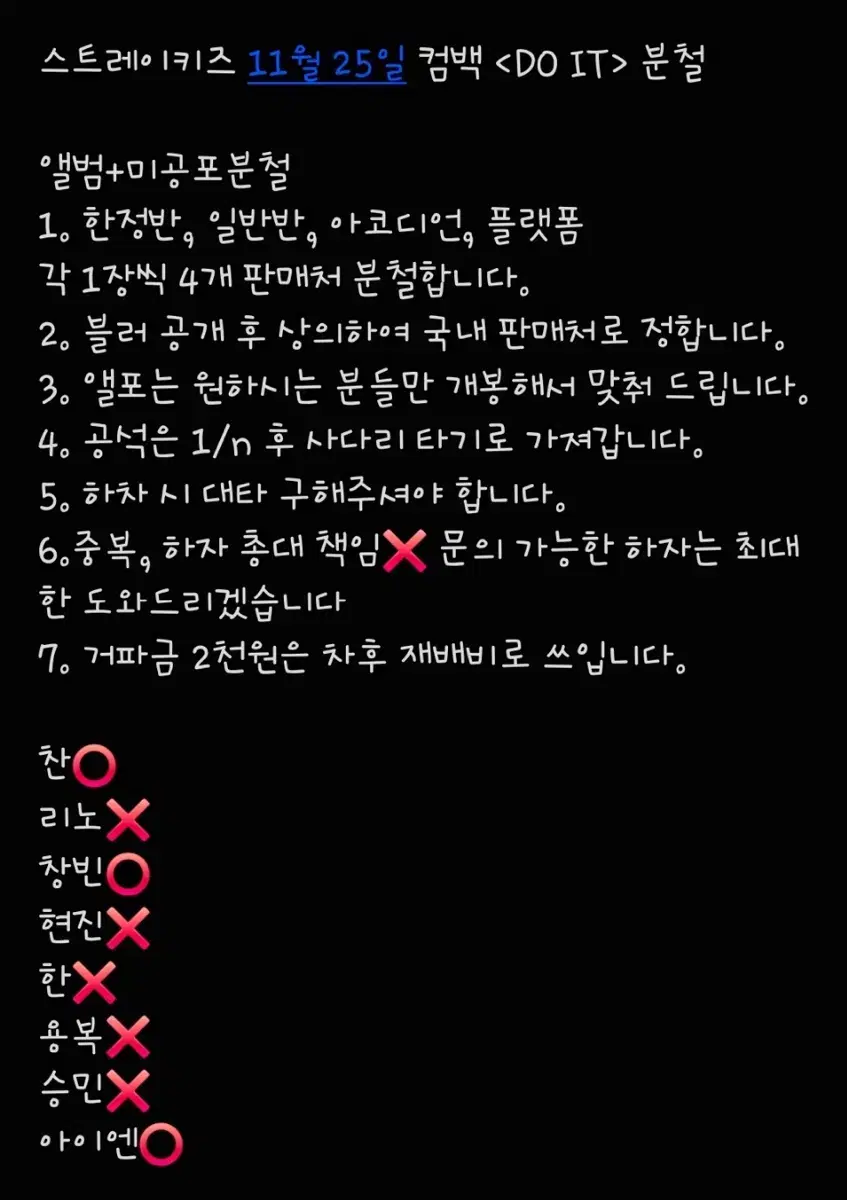 스트레이키즈 11월 25일 컴백 <DO IT> 분철
앨범+미공포분철
1. 한정반, 일반반, 아코디언, 플랫폼
각 1장씩 4개 판매처 분철합니다.
2. 블러 공개 후 상의하여 국내 판매처로 정합니다.
3. 앨포는 원하시는 분들만 개봉해서 맞춰 드립니다.
4. 공석은 1/n 후 사다리 타기로 가져갑니다.
5. 하차 시 대타 구해주셔야 합니다.
6.중복, 하자 총대 책임❌ 문의 가능한 하자는 최대
한 도와드리겠습니다
7. 거파금 2천원은 차후 재배비로 쓰입니다.
찬⭕
리노❌
창빈⭕
현진❌
한❌
용복❌
승민❌
아이엔⭕